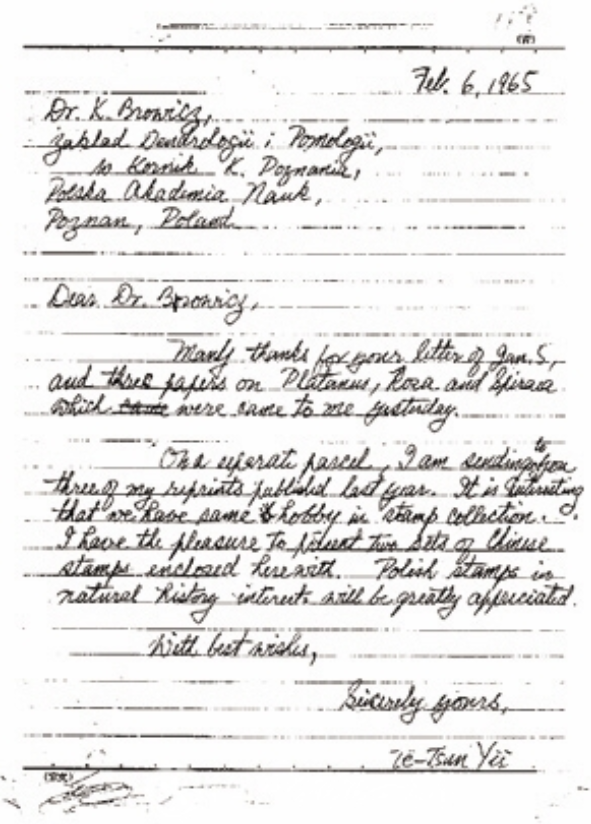 Feb. 6, 1965
Dr. K. Browicz,
Zaklad Dendrologii i Pomologii,
w Kornik K. Poznania,
Polska Akademia Nauk,
Poznan, Poland
Dear Dr. Browicz,
Many thanks for your letter of Jan. 5,
and three papers on Platanus, Rosa and Spiraea
which came were came to me yesturday.
On a seperate parcel, I am sending to you
three of my reprints published last year. It is interesting
that we have same hobby in stamp collection.
I have the pleasure to present two sets of Chinese
stamps enclosed herewith. Polish stamps in
natural history interests will be greatly appriciated.
With best wishes,
Sincerely yours,
Te-Tsun Yü